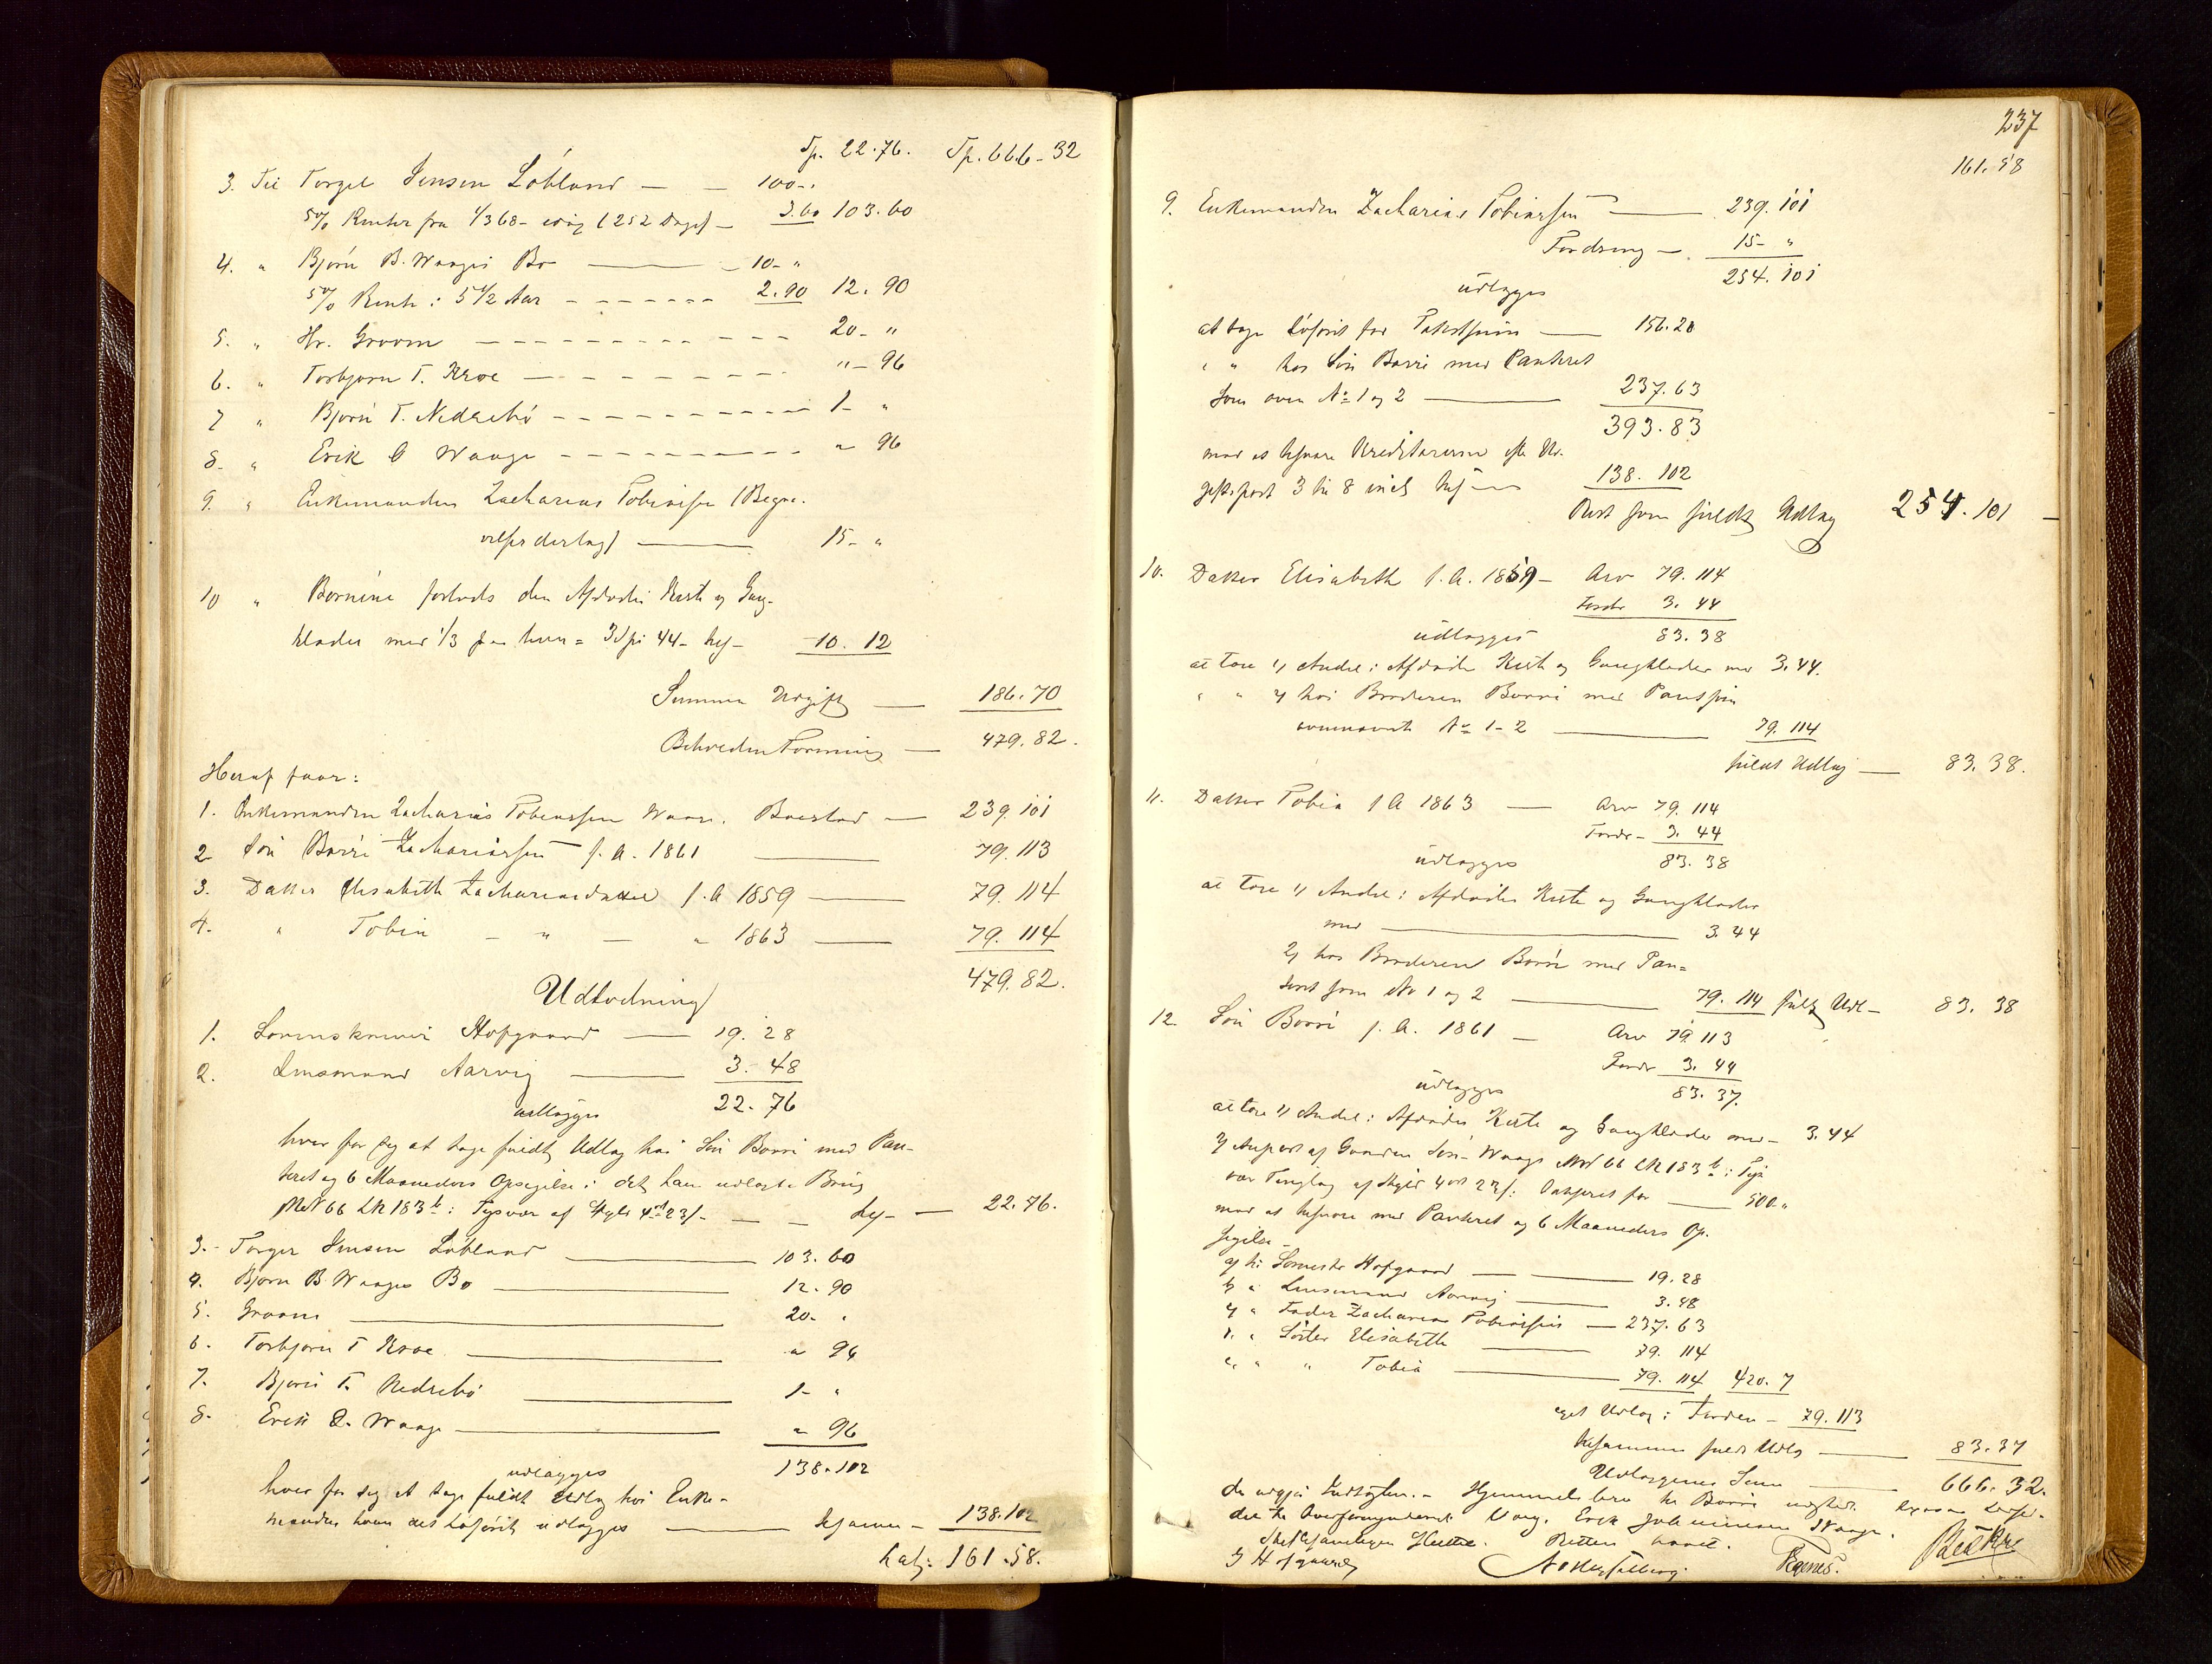 Sp. 22.76. Sp. 666-32
3. Til Torgel Jensen Løbland — — 100-.
5% Renter fra 1/3 68 - idag (252 Dage) — 3.60 103.60
4. " Bjørn B. Waages Bo — 10- "
5% Rente i 5 1/2 Aar - - - - - - 2.90 12.90
5. " Hr. Groom - - - - - - - - - - 20- "
6. " Torbjørn T. Kroe - - - - - - - "- 96
7 " Bjørn T. Nedrebø - - - - - - - - 1- "
8. " Erik Waage - - - - - - - - - " 96
9. " Enkemanden Zacharias Tobiassen (Begra-
velsesderlag) — 15- "
10 " Børnene forlods den Afdødes Kiste og Gang-
klæder med 1/3 paa hver = 3 Sp 44 - tils — 10. 12
Summa Udgift — 186.70
Beholden Formue — 479.82.
Heraf faar:
1. Enkemanden Zacharias Tobiassen Waage, Boeslod — 239.101
2 Søn Børre Zachariassen f. A. 1861 — 79.113
3. Datter Elisabeth Zachariasdatter f. A 1859 — 79.114
4. " Tobia - " — " 1863 — 79.114
479.82.
Udlodning
1. Sorenskriver Hofgaard — 19. 28
2. Lensmand Aarvig — 3- 48
udlægges 22. 76
hver for sig at tage fuldt Udlag hos Søn Børre med Pan-
teret og 6 Maaneders Opsigelse i det ham udlagte Brug
MNo 66 LN 183 b i Tysvær af Skyld 4 ort 23 s - — — tils — 22.76.
3. - Torger Jensen Løbland — 103.60
4. Bjørn B. Waages Bo — 12.90
5. Groom — 20- .
6. Torbjørn T Kroe — " 96
7. Bjørn T. Nedrebø — 1- "
8. Erik Waage — " 96
udlægges 138.102
hver for sig at tage fuldt Udlag hos Enke-
manden hvem det Løsøret udlægges — tilsammen — 138.102
Lat: 161.58.
237
161.58
9. Enkemanden Zacharias Tobiassen — 239.101
Fordring — 15- "
254.101
udlægges
at tage Løsøret for Taxtsum — 156.20
" " hos Søn Børre med Panteret
som oven No 1 og 2 — 237.63
393.83
mod at besvare Kreditorerne efter Ud-
giftspost 3 til 8 incl tils — 138. 102
Rest som fuldt Udlag 254.101 —
10. Datter Elisabeth f. A. 1859 - Arv 79.114
Fordr 3. 44
udlægges 83.38
at tage 1) Andel i Afdødes Kiste og Gangklæder med 3.44.
" " 2) hos Broderen Børre med Pantsum
ovennævnte No 1-2 — 79.114
fuldt Udlag — 83.38.
11. Datter Tobia f A 1863 — Arv 79.114
Fordr - 3. 44
udlægges 83.38
at tage 1) Andel i Afdødes Kiste og Gangklæder
med — 3.44
2) hos Broderen Børre med Pan-
teret som No 1 og 2 — 79.114 fuldt Udl — 83.38
12 Søn Børre f. A. 1861 — Arv 79 113
Fordr 3. 44
udlægges 83.37.
at tage 1) Andel i Afdødes Kiste og Gangklæder med — 3.44
2) Anpart af Gaarden Waage MNo 66 LN 183 b i Tys-
vær Tinglag af Skyld 4 ort 23 s: taxeret for — 500 "
mod at besvare med Panteret og 6 Maaneders Op-
sigelse -
a) til Sorenskr Hofgaard — 19.28
b) " Lensmand Aarvig — 3.48
c) " Fader Zacharias Tobiassen — 237.63
d. " Søster Elisabeth — 79. 114
e. " " Tobia — 79. 114 420.7
eget Udlag i Jorden — 79.113
tilsammen fuldt Udlag — 83.37
Udlæggenes Sum — 666.32.
Hjemmelsbrev til Børre
til Overformynderiet Erik Johannessen Waage.
Skiftesamlingen sluttet. Retten hævet.
J Hofgaard